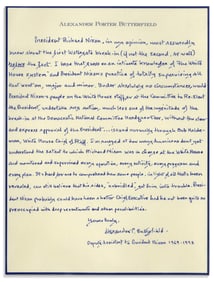 ALEXANDER PORTER BUTTERFIELD
President Richard Nixon, in my opinion, most assuredly
knew about the first Watergate break-in (if not the second, as well)
before the fact. I base that on an intimate knowledge of the "White
House system" and President Nixon's practice of totally supervising all
that went on, major and minor. Under absolutely no circumstances, would
President Nixon's people on the White House staff or at the Committee to Re-Elect
the President, undertake any action, much less one of the magnitude of the
break-in at the Democratic National Committee Headquarters, without the clear
and express approval of the President
White House Chief of Staff. I'm amazed at how many Americans don't yet
understand the extent to which Richard Nixon was in charge at the White House
and monitored and supervised every operation, every activity, every program and
every plan. It's hard for me to comprehend how some people, in light of all that's been
revealed, can still believe that his aides, 'misguided', got him into trouble. President
Nixon probably could have been a better Chief Executive had he not been quite so
preoccupied with deep resentments and other peculiarities.
Yours truly,
Alexander P. Butterfield
Deputy Assistant to President Nixon 1969-1973